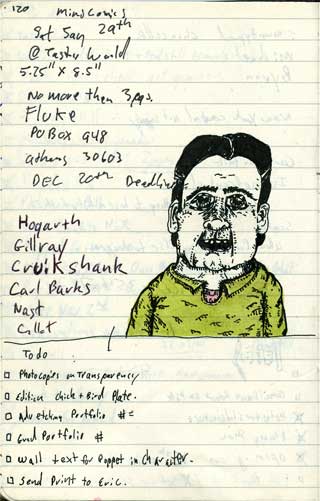 120
Mini Comics
Sat Jan 29th
@ Tasty World
5.25" X 8.5"
No more then 3pgs.
Fluke
PO Box 948
Athens 30603
DEC 20th Deadline
Hogarth
Gillray
Cruikshank
Carl Barks
Nast
Callot
To do
Photocopies on Transparency
Edition Chick + Bird Plate.
Adv Etching Portfolio #=
Grad Portfolio #
Wall text for Puppet in Character.
Send Print to Eric.